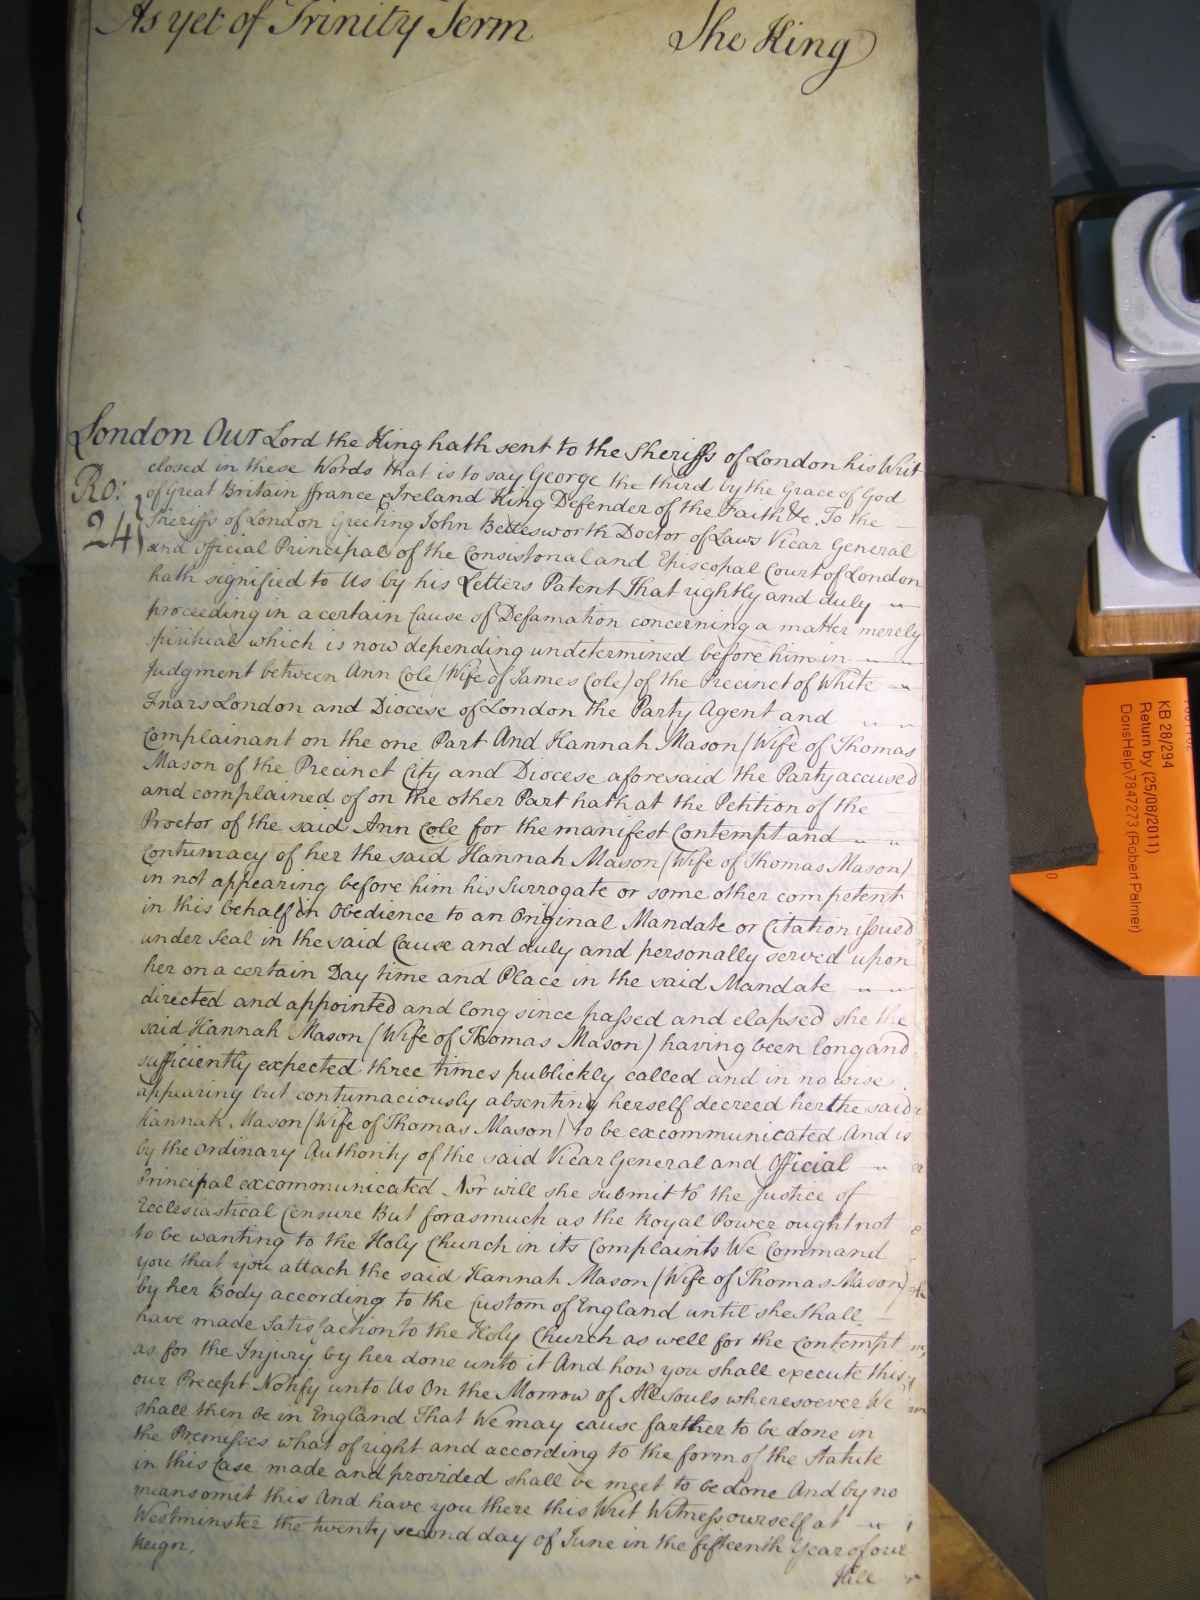 As yet of Trinity Term The King
London Our Lord the King hath sent to the Sheriffs of London his Writ
closed in these Words that is to say George the third by the Grace of God
Ro: of Great Britain ffrance & Ireland King Defender of the Faith &c. To the
24 Sheriffs of London Greeting John Bettesworth Doctor of Laws Vicar General
and official Principal of the Consistorial and Episcopal Court of London
hath signified to Us by his Letters Patent That rightly and duly
proceeding in a certain Cause of Defamation concerning a matter merely
spiritual which is now depending undetermined before him in
Judgment between Ann Cole (Wife of James Cole) of the Precinct of White
Friars London and Diocese of London the Party Agent and
Complainant on the one Part And Hannah Mason (Wife of Thomas
Mason of the Precinct City and Diocese aforesaid the Party accused
and complained of on the other Part hath at the Petition of the
Proctor of the said Ann Cole for the manifest Contempt and
Contumacy of her the said Hannah Mason (Wife of Thomas Mason)
in not appearing before him his Surrogate or some other competent
in this behalf in Obedience to an Original Mandate or Citation issued
under Seal in the said Cause and duly and personally served upon
her on a certain Day time and Place in the said Mandate
directed and appointed and long since passed and elapsed she the
said Hannah Mason (Wife of Thomas Mason) having been long and
sufficiently expected three times publickly called and in no wise
appearing but contumaciously absenting herself decreed her the said
Hannah Mason (Wife of Thomas Mason) to be excommunicated And is
by the ordinary Authority of the said Vicar General and Official
Principal excommunicated Nor will she submit to the Justice of
Ecclesiastical Censure But forasmuch as the Royal Power ought not
to be wanting to the Holy Church in its Complaints We Command
you that you attach the said Hannah Mason (Wife of Thomas Mason)
by her Body according to the Custom of England until she shall
have made Satisfaction to the Holy Church as well for the Contempt
as for the Injury by her done unto it And how you shall execute this
our Precept Notify unto Us On the Morrow of All Souls wheresoever We
shall then be in England That We may cause farther to be done in
the Premisses what of right and according to the form of the Statute
in this Case made and provided shall be meet to be done And by no
means omit this And have you there this Writ Witness ourself at
Westminster the twenty second day of June in the fifteenth Year of our
Reign.
Hill
KB 28/294
Return by (25/08/2011)
DorisHelp\7847273 (Robert Palmer)